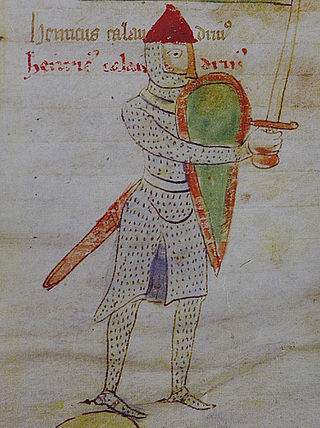 henricus calandrinus
henricus calandrinus